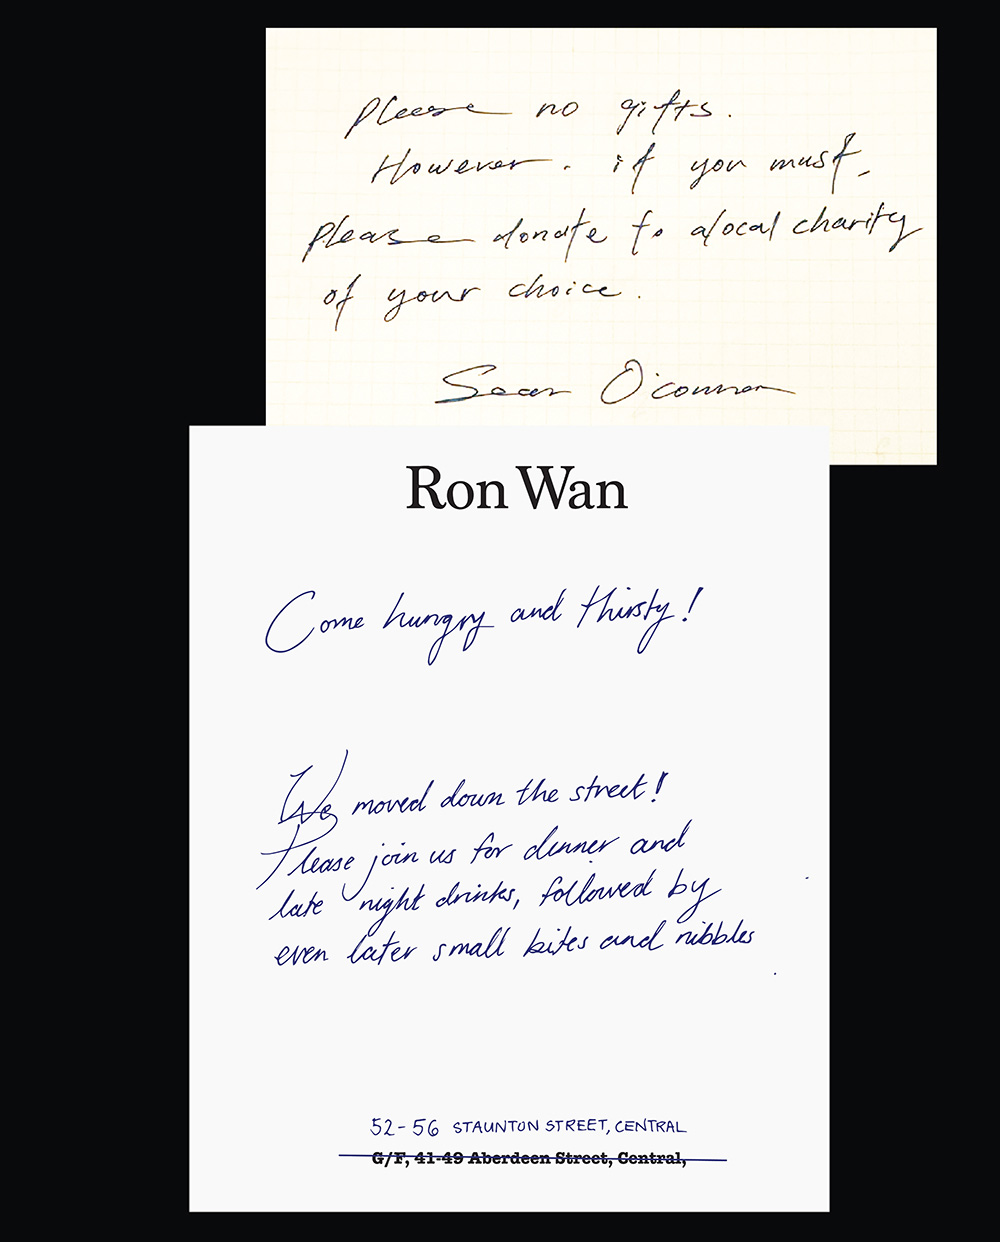 Please no gifts.
However. if you must,
please donate to a local charity
of your choice.
Sean O'connor
Ron Wan
Come hungry and thirsty!
We moved down the street!
Please join us for dinner and
late night drinks, followed by
even later small bites and nibbles
52-56 STAUNTON STREET, CENTRAL
G/F, 41-49 Aberdeen Street, Central,